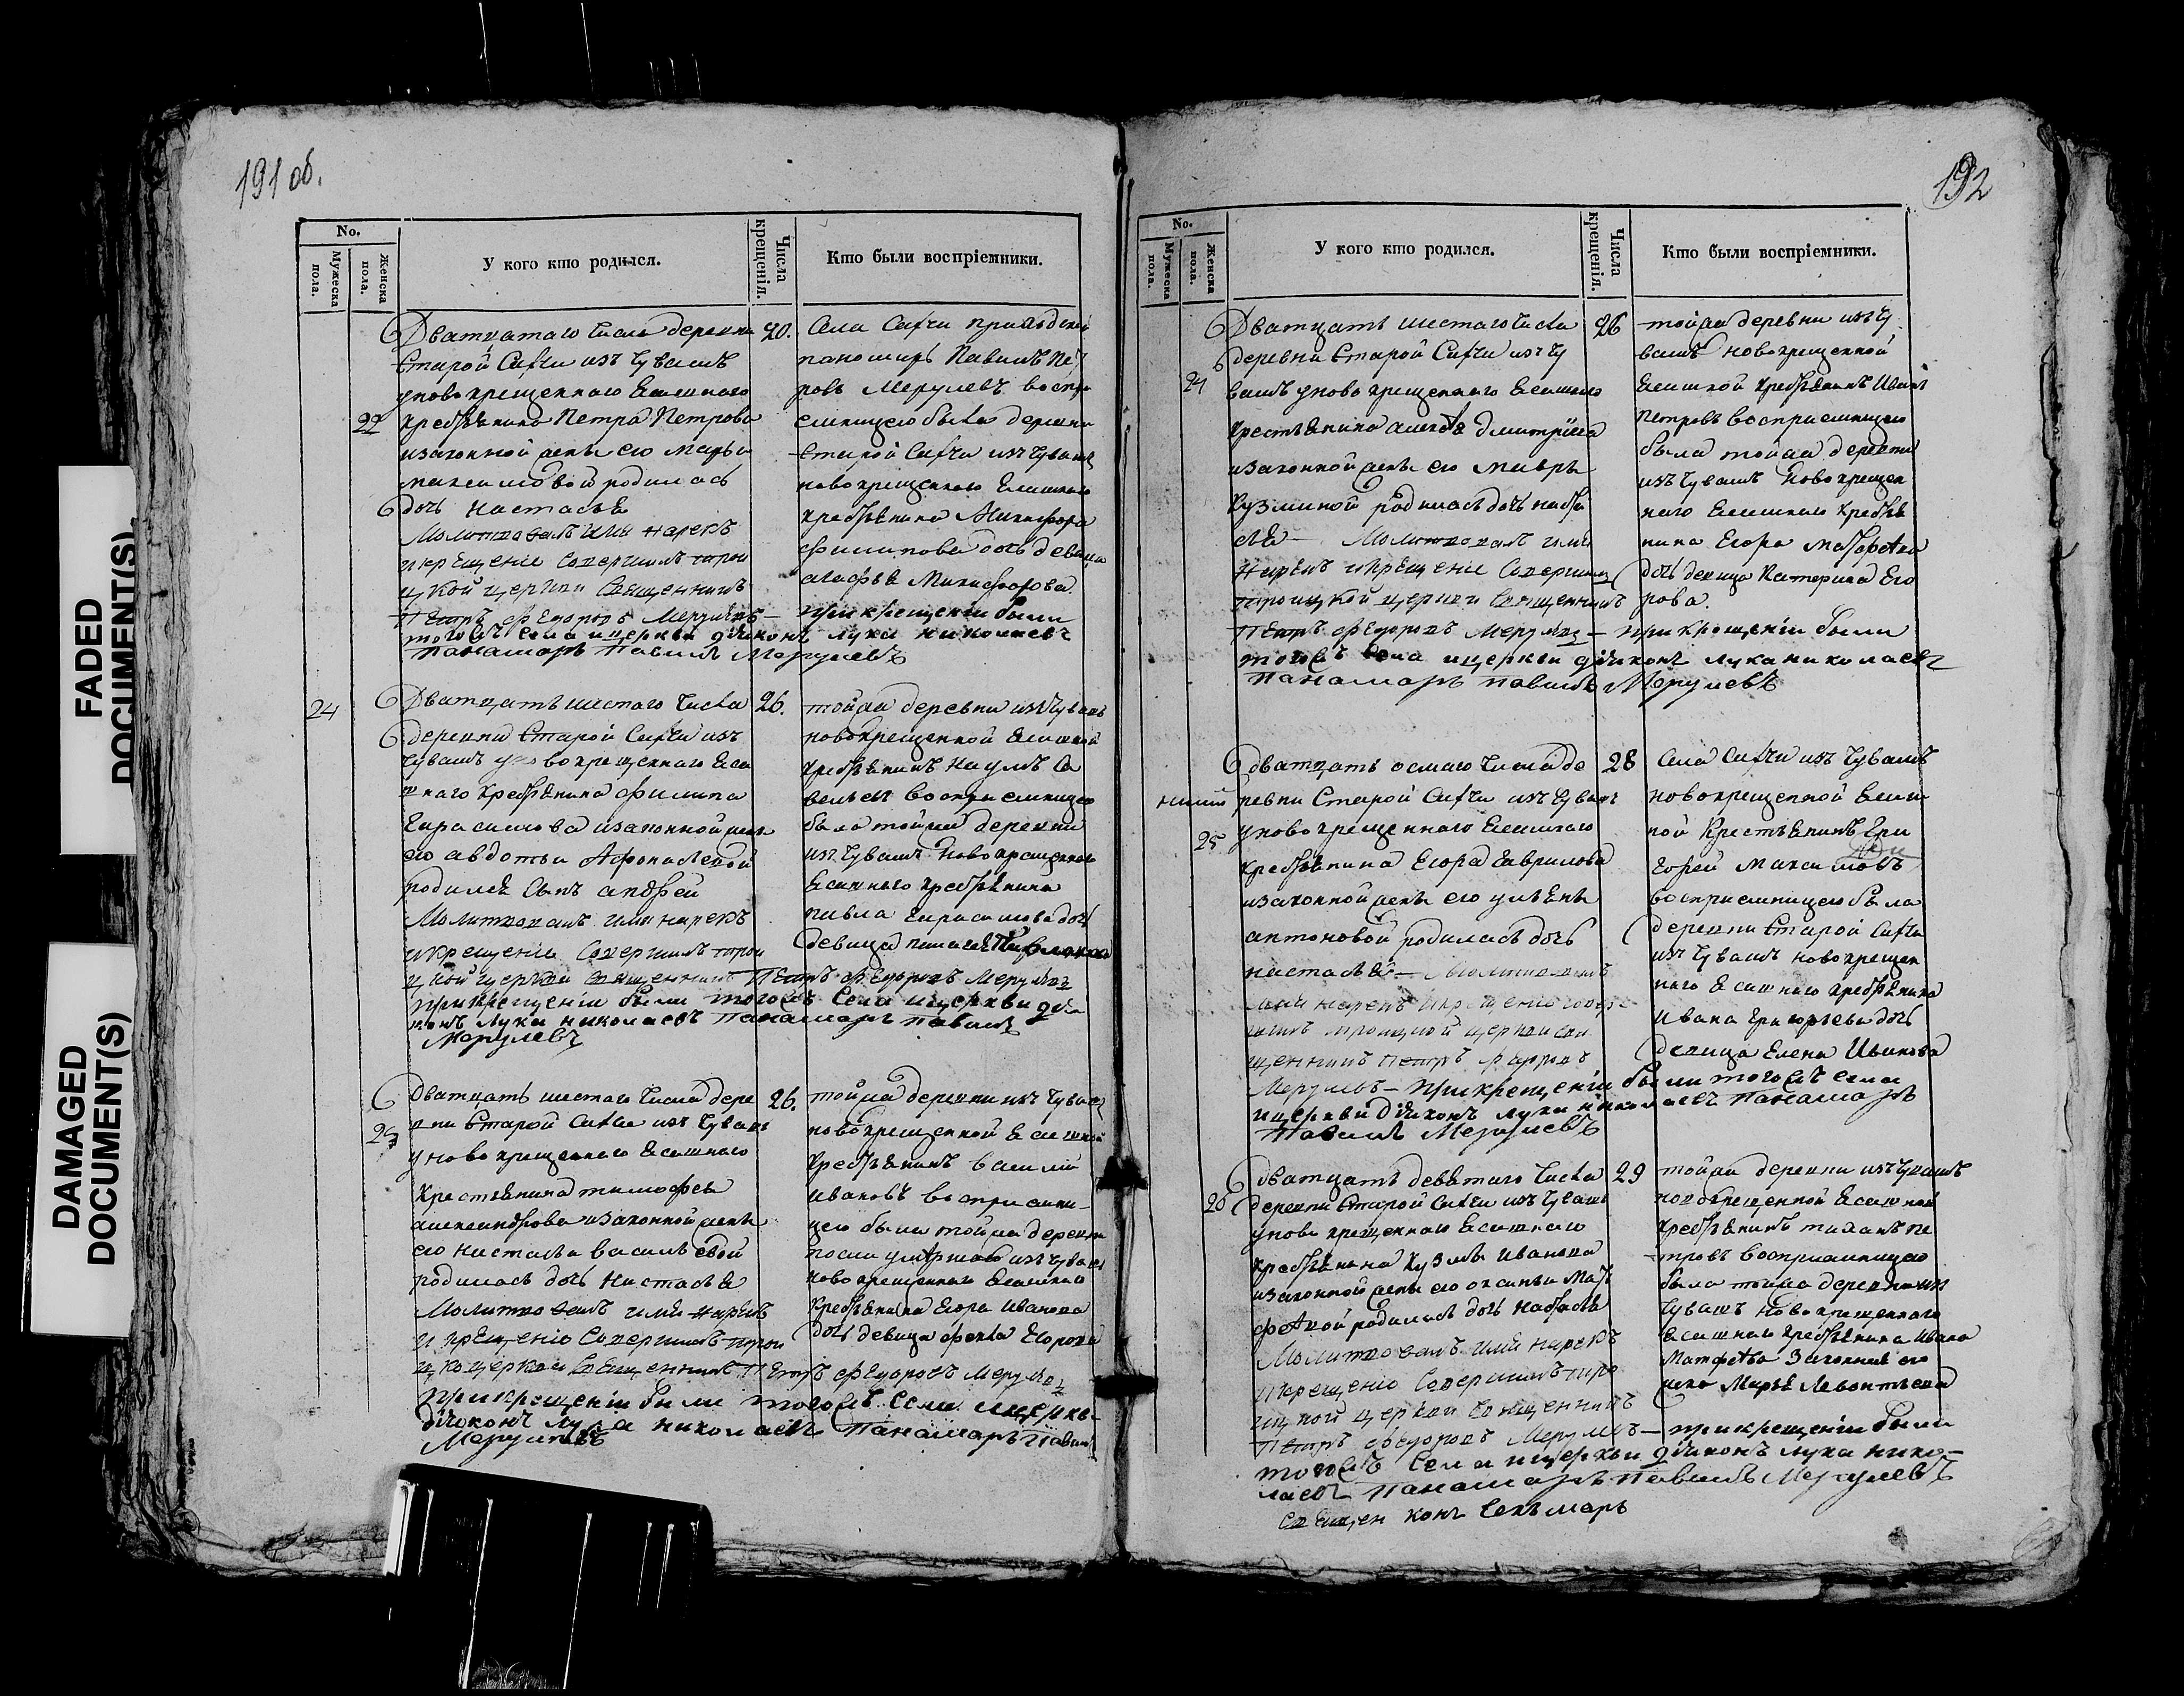 FADED
DOCUMENT(S).
DAMAGED
DOCUMENT(S)
191 об.
No.
Мужеска пола.
Женска пола.
У кого кто родился.
Числа крещенія.
Кто были воспріемники.
22
Дватцатаго числа деревни
Старой Сахчи изъ Чувашъ
уновокрещеннаго Ясашнаго
крестьянина Петра Петрова
изаконной жены его Марьи
родилась
дочь Настасья
Молитвовалъ имя нарекъ
икрещеніе Совершилъ трои
цкой церкви Священникъ
Петръ Федоровъ Мерулевъ
тогожъ села ицеркви діаконъ
Панамарь Павилъ Мерулевъ
20.
Села Сахчи
панамарь Павилъ Пет
ровъ Мерулевъ воспри
емницею была деревни
Старой Сахчи изъ Чувашъ
новокрещеннаго Ясашнаго
крестьянина Никифора
Филипова дочь девица
агафья Микифорова
при крещеніи были
лука николаевъ
24
Дватцать шестаго числа
деревни Старой Сахчи изъ
Чувашъ уновокрещеннаго Яса
шнаго крестьянина филипа
Герасимова изаконной жены
его авдотьи Афонасьевой
родился сынъ андрей
Молитвовалъ имя нарекъ
икрещеніе Совершилъ трои
цкой церкви Священникъ Петръ Федоровъ Мерулевъ
прикрещеніи были тогожъ Села ицеркви дья
конъ Лука николаевъ Панамарь павилъ
Мерулевъ
26.
тойжа деревни изъ Чувашъ
новокрещенной Ясашной
крестьянинъ Наумъ Са
вельевъ восприемницею
была тойжа деревни
изъ Чувашъ Новокрещеннаго
Ясашнаго крестьянина
павла Герасимова дочь
девица
23
Дватцать шестаго числа дере
вни Старой Сахчи изъ Чувашъ
уновокрещеннаго Ясашнаго
Крестьянина тимофея
александрова изаконной жены
его настасьи васильевой
родилась дочь Настасья
Молитвовалъ имя нарекъ
и крещеніе Совершилъ трои
цкой церкви Священникъ Петръ Федоровъ Мерулевъ
прикрещеніи были тогожъ Села ицеркви
діаконъ Лука николаевъ Панамарь Павилъ
Мерулевъ
26.
тойжа деревни изъ Чувашъ
новокрещенной Ясашной
крестьянинъ василей
Ивановъ восприемни-
цею была тойжа деревни
изъ Чувашъ
новокрещеннаго Ясашнаго
крестьянина Егора Иванова
дочь девица Фекла Егорова
192
No.
Мужеска пола.
Женска пола.
У кого кто родился.
Числа крещенія.
Кто были воспріемники.
24
Дватцать шестаго числа
деревни Старой Сахчи изъ Чу
вашъ уновокрещеннаго Ясашнаго
Крестьянина алексея дмитриева
изаконной жены его мавры
Кузминой родилась дочь настa
сья — Молитвовалъ имя
Нарекъ икрещеніе Совершилъ
троицкой церкви Священникъ
Петръ Федоровъ Мерулевъ — при крещеніи были
тогожъ Села ицеркви діаконъ лука николаевъ
Панамарь павилъ Мерулевъ
26
тойжа деревни изъ Чу
вашъ новокрещенной
Ясашной крестьянинъ Иванъ
Петровъ восприемницею
была тойжа деревни
изъ Чувашъ Новокрещен
наго Ясашнаго Крестья
нина Егора Матфеева
дочь девица Катерина Его
рова.
25
Дватцать осмаго числа де
ревни Старой Сахчи изъ Чувашъ
уновокрещеннаго Ясашнаго
Крестьянина Егора Гаврилова
изаконной жены его ульяны
антоновой родилась дочь
настасья — Молитвовалъ
имя нарекъ икрещеніе совер
шилъ троицкой церкви свя
щенникъ петръ Федоровъ
Мерулевъ — прикрещеніи были тогожъ села
ицеркви діаконъ лука николаевъ Панамарь
Павилъ Мерулевъ
28
Села Сахчи изъ Чувашъ
новокрещенной Ясаш
ной Крестьянинъ Гри
горей Максимовъ
восприемницею была
деревни Старой Сахчи
изъ Чувашъ новокрещен
наго Ясашнаго крестьянина
Ивана Григорьева дочь
девица Елена Иванова
26
Дватцать девятаго числа
деревни Старой Сахчи изъ Чувашъ
уновокрещеннаго Ясашнаго
крестьянина Кузмы Иванова
изаконной жены его оксиньи Мат
феевой родилась дочь Настасья
Молитвовалъ имя нарекъ
икрещеніе Совершилъ тро
ицкой церкви Священникъ
Петръ Федоровъ Мерулевъ — прикрещеніи были
тогожъ Села ицеркви діаконъ лука нико-
лаевъ Панамарь Павилъ Мерулевъ
29
тойжа деревни изъ Чувашъ
новокрещенной Ясашной
крестьянинъ Пе
тровъ восприемницею
была тойжа деревни изъ
Чувашъ новокрещеннаго
Ясашнаго крестьянина Ивана
Матфеева Законная его
жена Марья Левонтьева